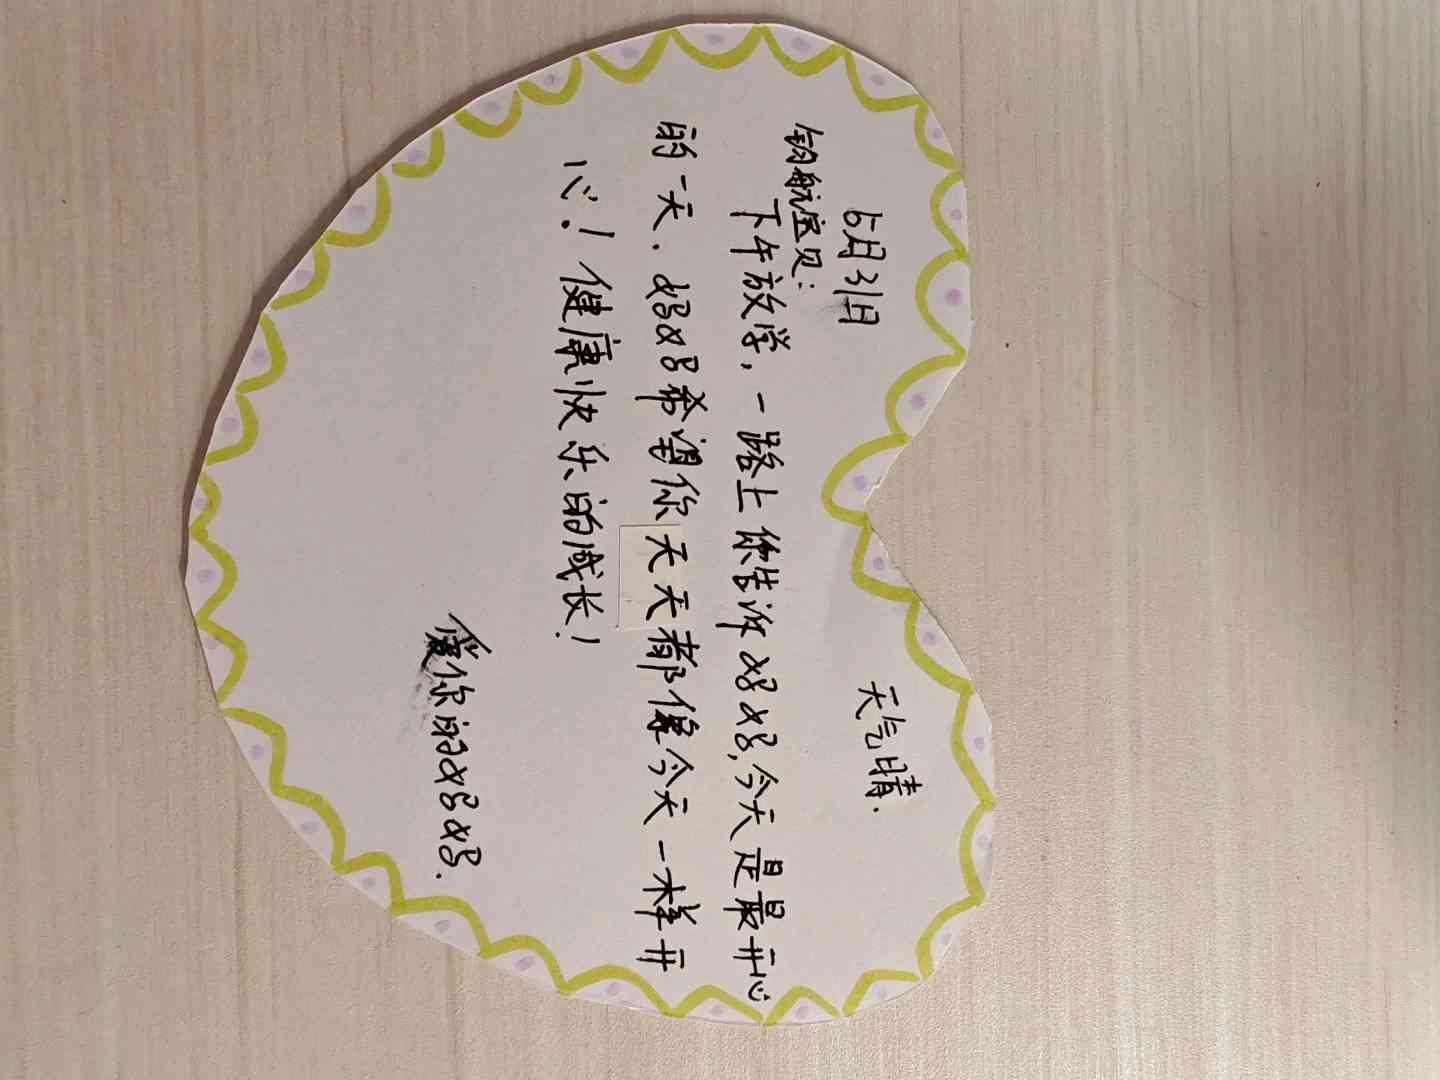 5月31日 天气晴.
钧航宝贝:
下午放学,一路上你告诉妈妈,今天是最开心
的一天.妈妈希望你天天都像今天一样开
心!健康快乐的成长!
爱你的妈妈.